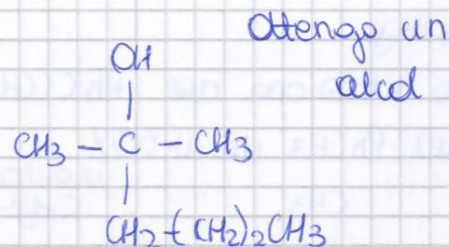 Ottengo un
alcol
OH
|
CH3 - C - CH3
|
CH2-(CH2)2CH3